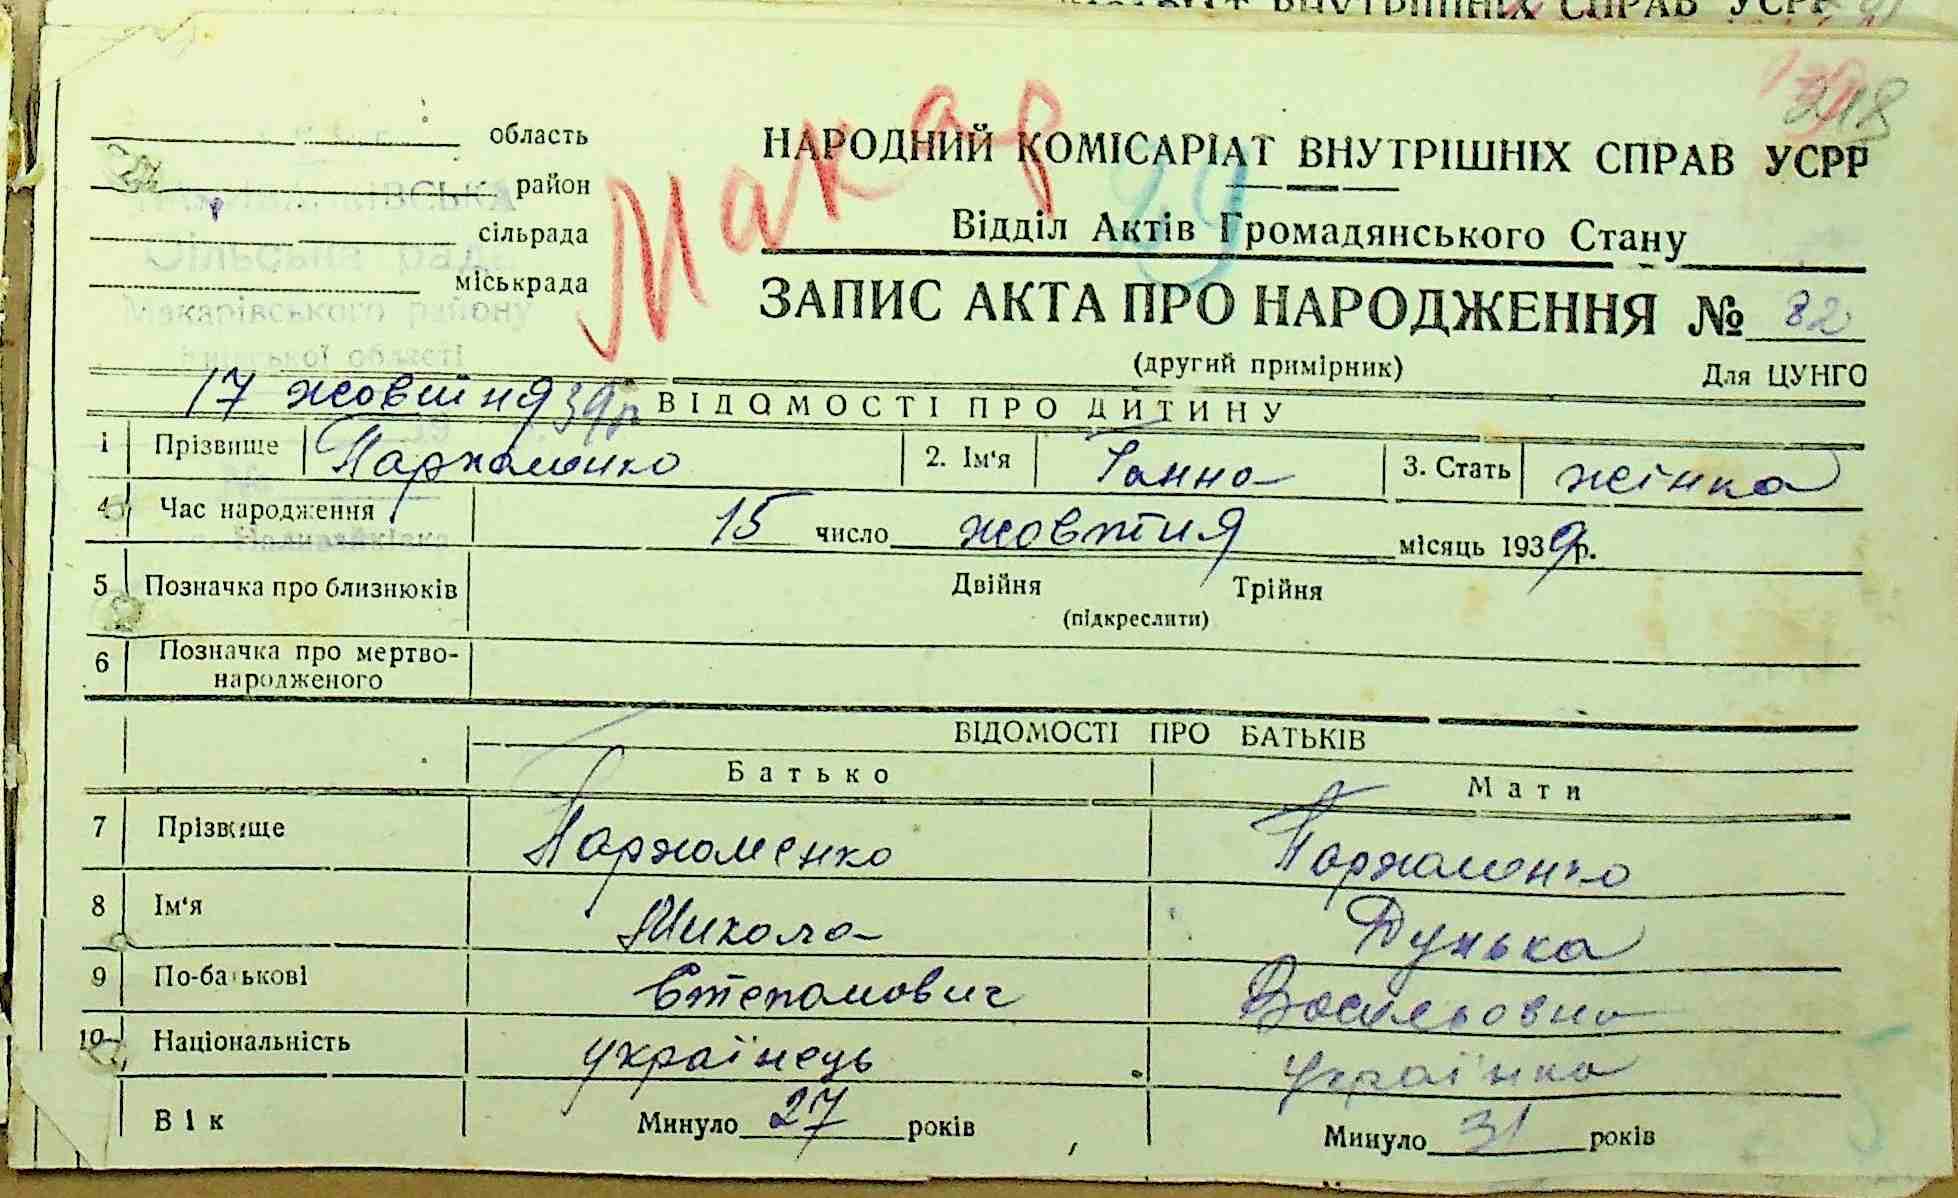 ВНУТРІШНІХ СПРАВ УСРР
218
Макар
29
область
район
сільрада
міськрада
Сільська рада
Макарівського району
Київської області
НАРОДНИЙ КОМІСАРІАТ ВНУТРІШНІХ СПРАВ УСРР
Відділ Актів Громадянського Стану
ЗАПИС АКТА ПРО НАРОДЖЕННЯ № 82
(другий примірник) Для ЦУНГО
17 жовтня 39р
ВІДОМОСТІ ПРО ДИТИНУ
1 Прізвище Пархоменко 2. Ім'я Ганна 3. Стать жінка
4 Час народження 15 число жовтня місяць 1939р.
5 Позначка про близнюків Двійня Трійня
(підкреслити)
6 Позначка про мертво-
народженого
ВІДОМОСТІ ПРО БАТЬКІВ
Батько Мати
7 Прізвище Пархоменко Пархоменко
8 Ім'я Микола Дунька
9 По-батькові Степанович Васильовна
10 Національність українець українка
Вік Минуло 27 років Минуло 31 років